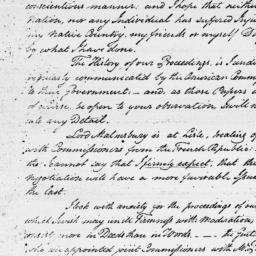 conscientious manner, and I hope that neither
Nation, nor any Individual has suffered Inju
my Native Country, my friends or myself D
by what I have done.
The History of our Proceedings, is I unde
regularly communicated by the American Comm
to their Government; — and, as those Papers
of course, be open to your observation, I will n
any Detail.
Lord Malmsbury is at Lisle, treating
with Commissioners from the French Republic:
I cannot say that I firmly expect, that the
negotiation will have a more favorable Issue
the last.
I look with anxiety for the proceedings of our
which I wish may unite Firmness with Moderation,
consist more in Deeds than in Words. —
who are appointed joint Commissioners with Mr